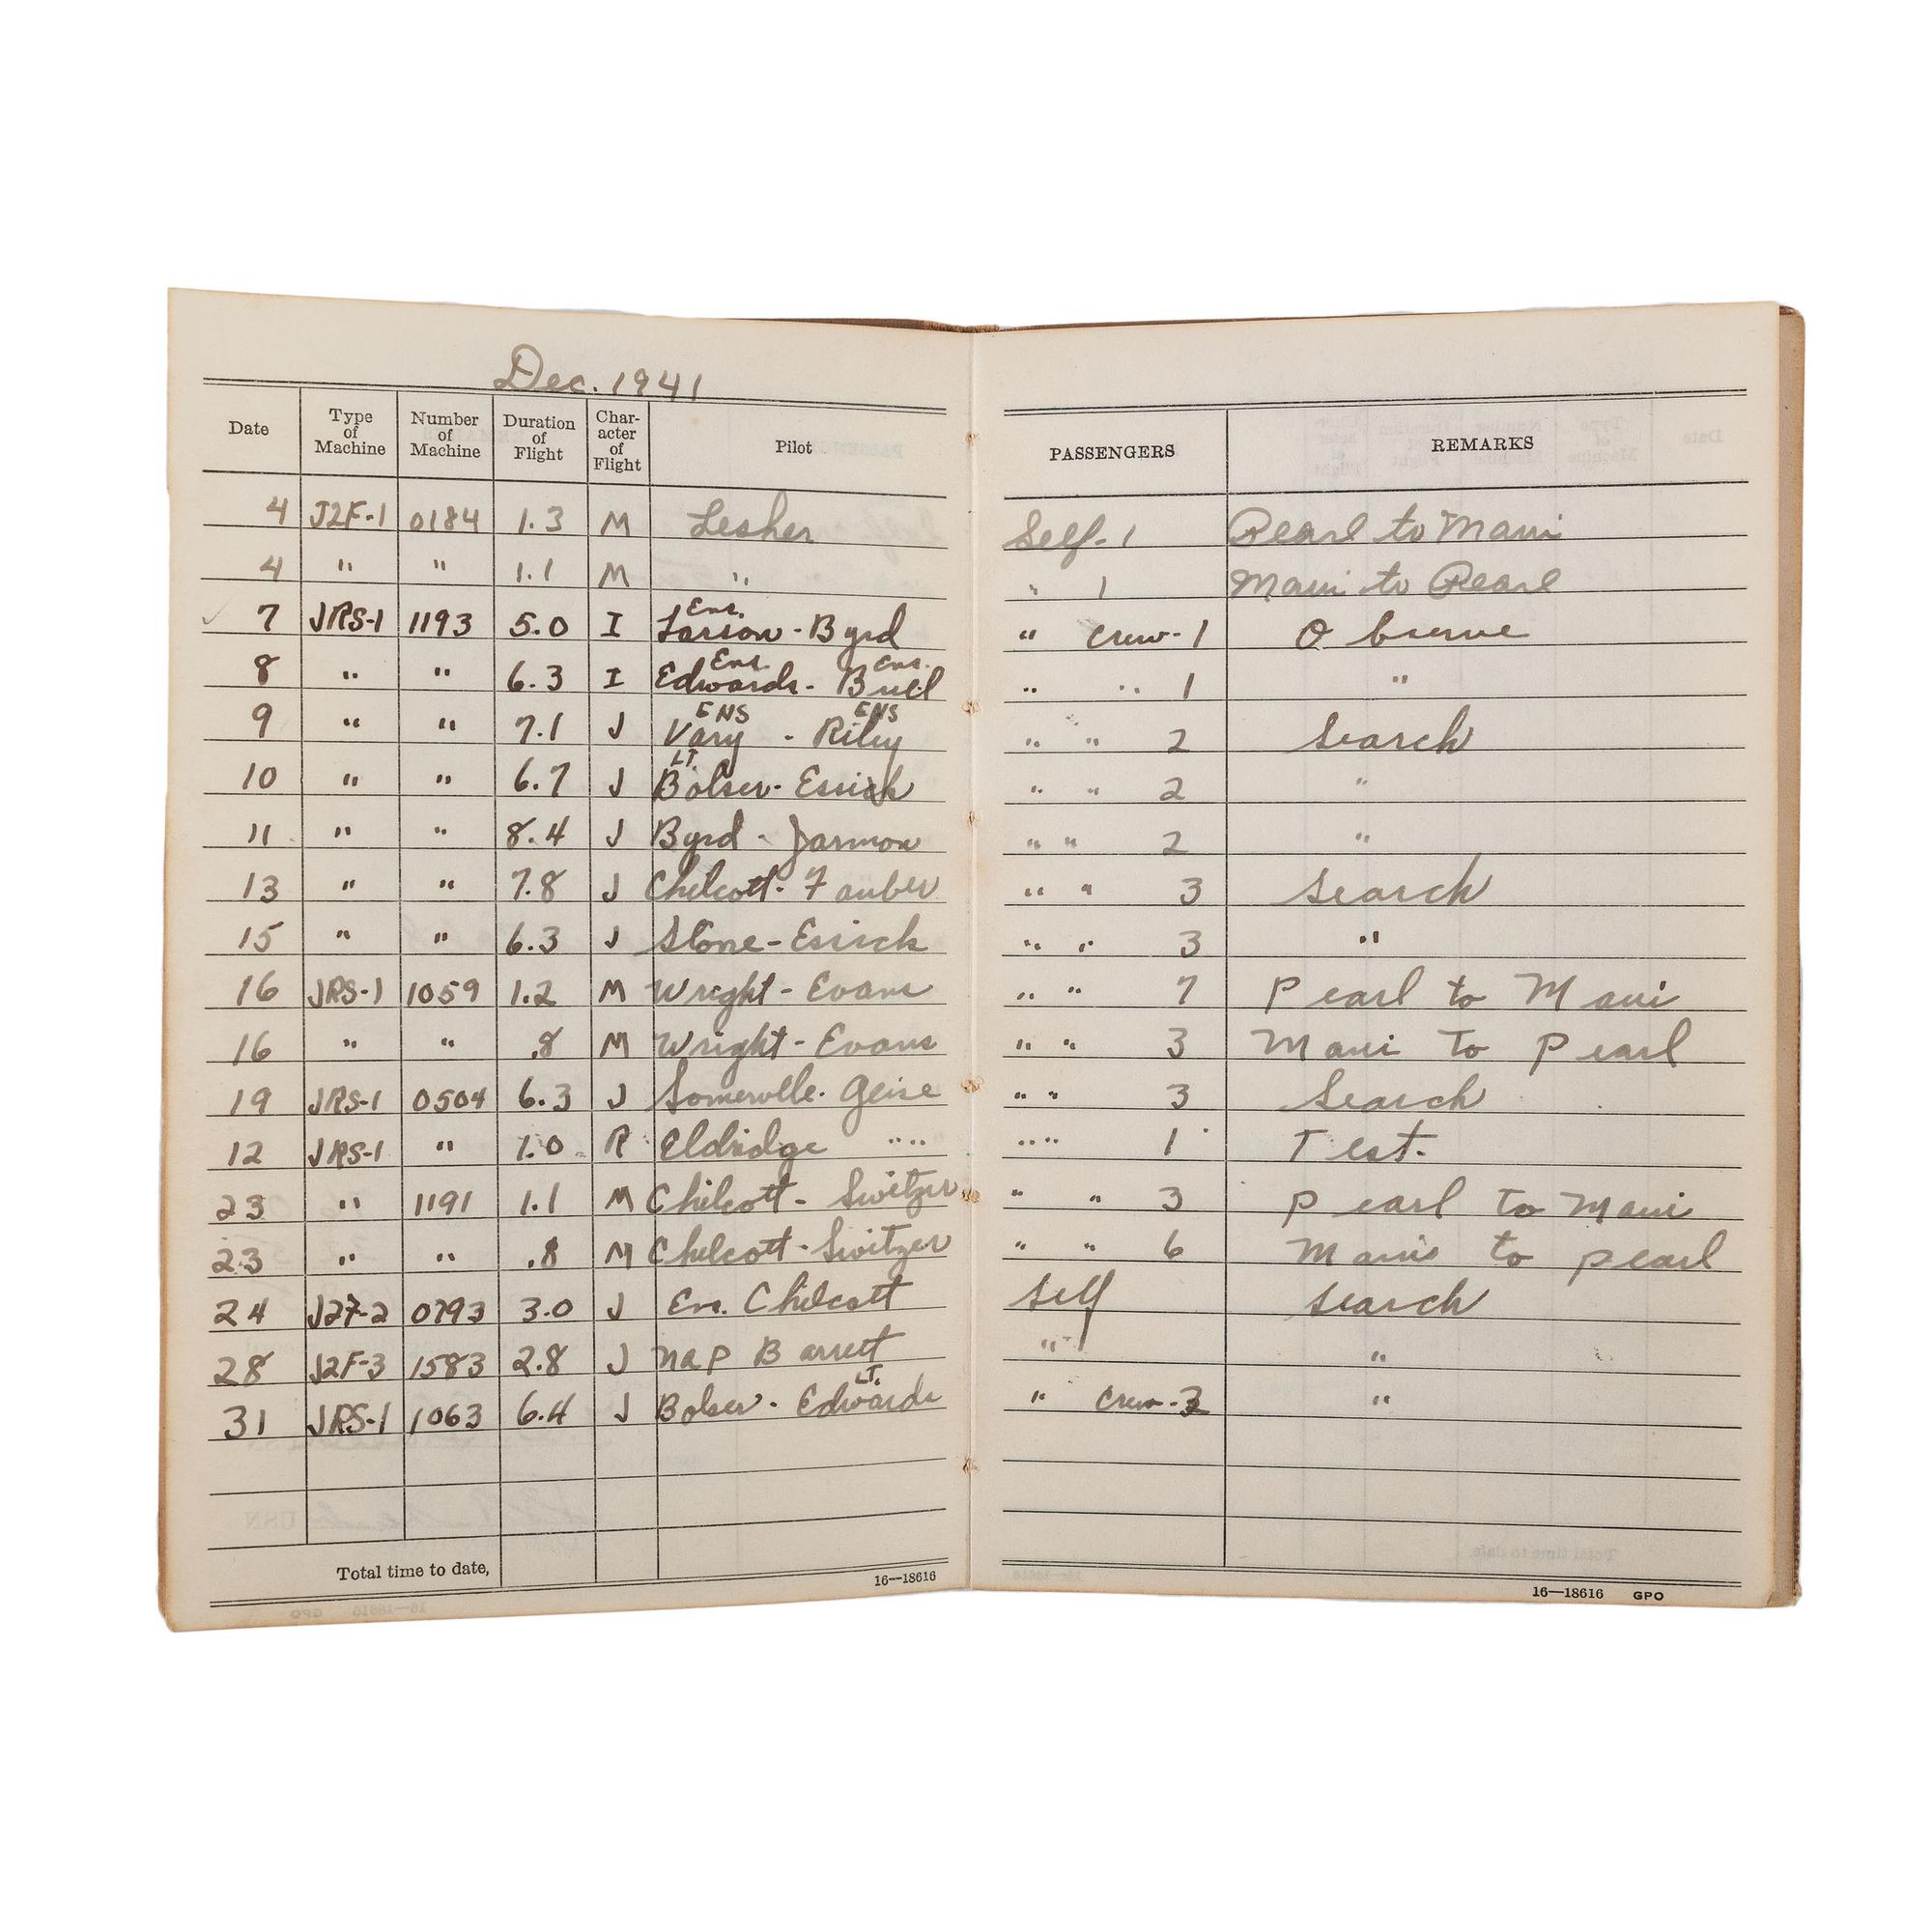 Dec. 1941
Date Type of Machine Number of Machine Duration of Flight Char-acter of Flight Pilot PASSENGERS REMARKS
4 J2F-1 0184 1.3 M Lesher Self-1 Pearl to Maui
4 " " 1.1 M " " 1 Maui to Pearl
7 JRS-1 1193 5.0 I Ens. Larson - Byrd " crew-1 Observe
8 " " 6.3 I Ens. Edwards - Ens. Bull " " 1 "
9 " " 7.1 J ENS Vary - ENS Riley " " 2 Search
10 " " 6.7 J LT. Bolser - Essick " " 2 "
11 " " 8.4 J Byrd - Jarmon " " 2 "
13 " " 7.8 J Chilcott - Fauber " " 3 Search
15 " " 6.3 J Stone - Esisck " " 3 "
16 JRS-1 1059 1.2 M Wright - Evans " " 7 Pearl to Maui
16 " " .8 M Wright - Evans " " 3 Maui To Pearl
19 JRS-1 0504 6.3 J Somerville - Geise " " 3 Search
12 JRS-1 " 1.0 R Eldridge " " " " 1 Test.
23 " 1191 1.1 M Chilcott - Switzer " " 3 Pearl To Maui
23 " " .8 M Chilcott - Switzer " " 6 Maui to pearl
24 J2F-2 0793 3.0 J Ens. Chilcott Self Search
28 J2F-3 1583 2.8 J NAP Barrett " "
31 JRS-1 1063 6.4 J Bolser - LT. Edwards " crew-3 "
Total time to date,
16—18616
16—18616 GPO